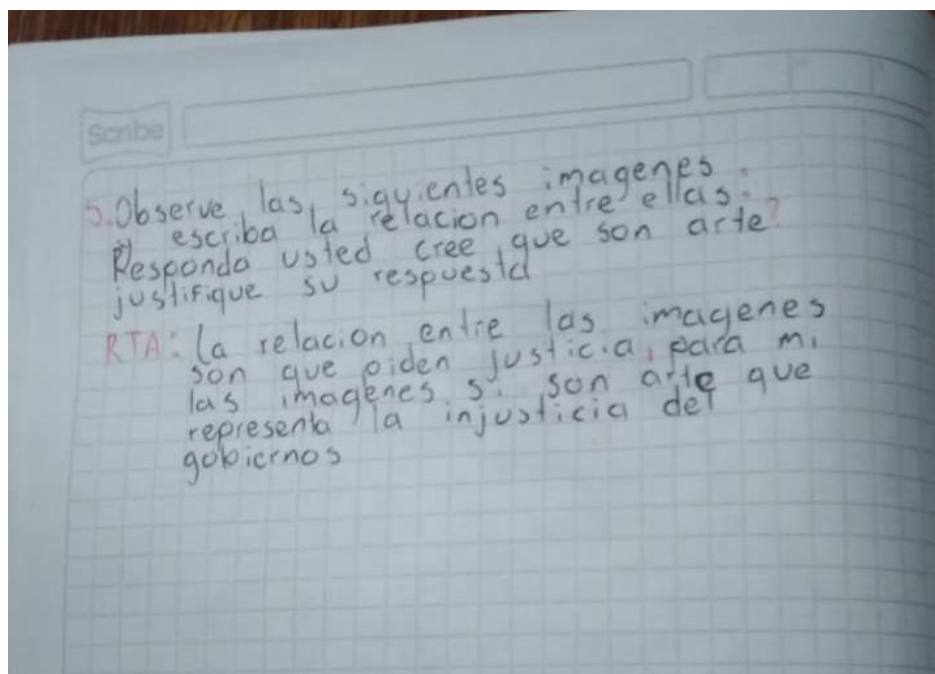 Scribe
5. Observe las siguientes imagenes
y escriba la relacion entre ellas.
Responda usted cree que son arte?
justifique su respuesta
RTA: la relacion entre las imagenes
son que piden justicia, para mi
las imagenes si son arte que
representa la injusticia del
gobiernos